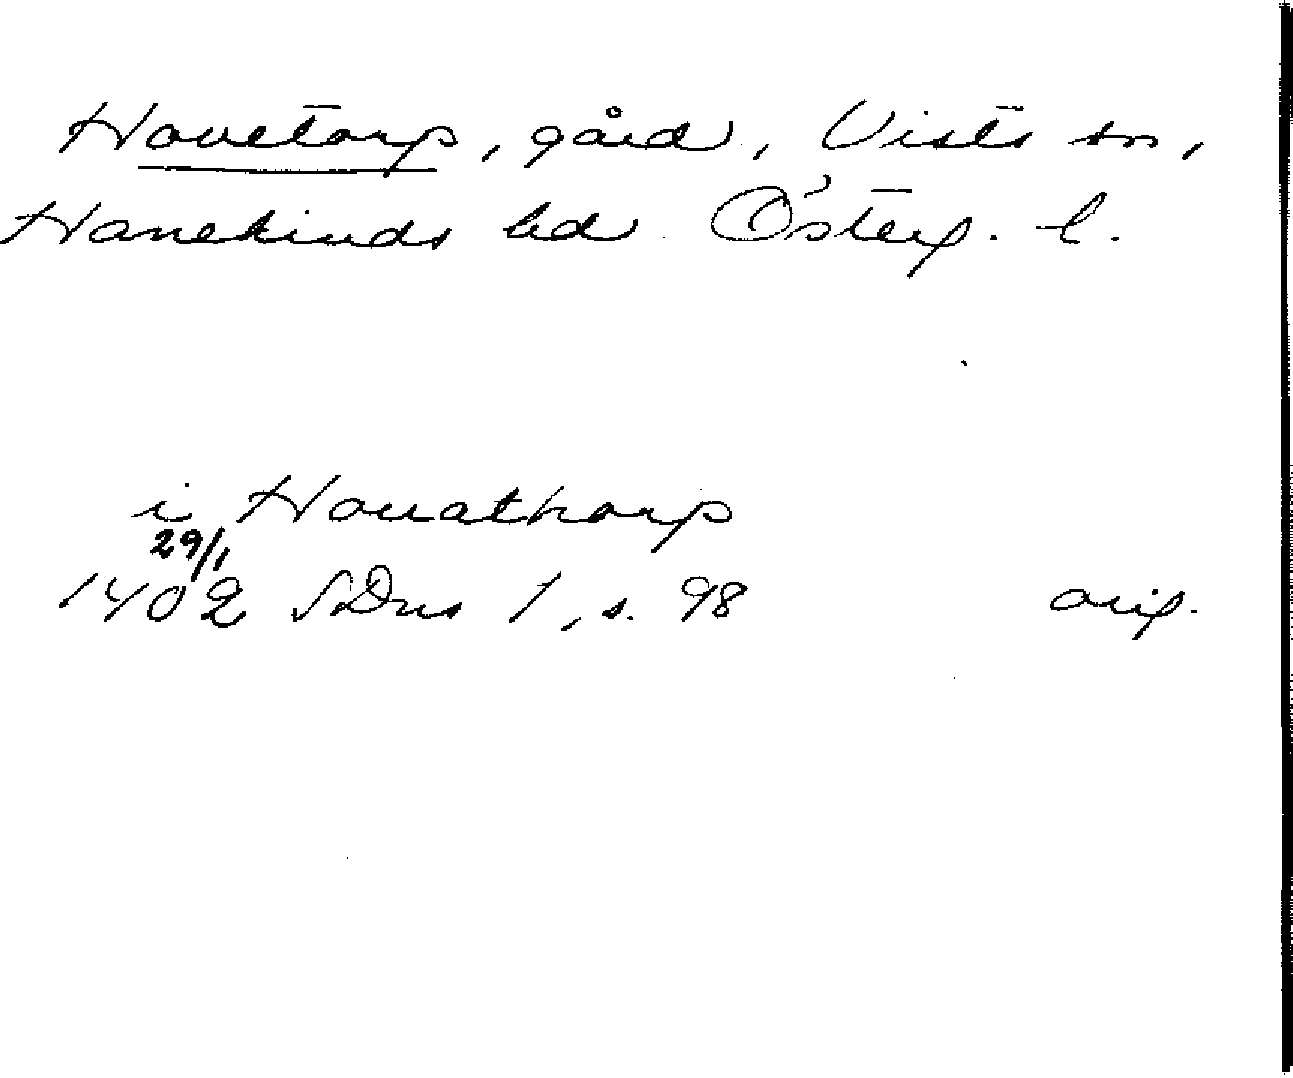 Hovetorp, gård, Vists sn,
Hanekinds hd Österg. l.
i Houathorp
29/1
1402 SDns 1, s. 98 orig.